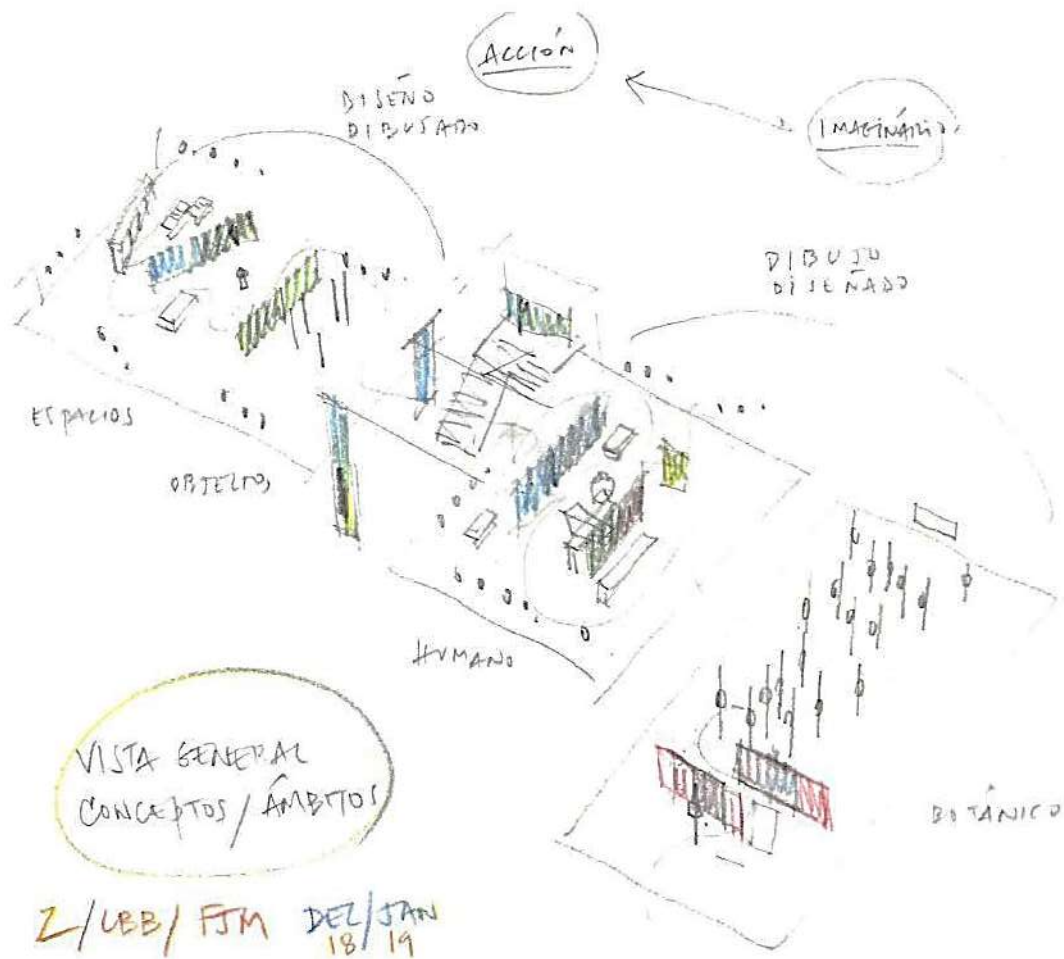 ACCIÓN
DISEÑO
DIBUSADO
IMAGINÁRIO
DIBUJO
DISEÑADO
ESPACIOS
OBJETOS
HUMANO
BOTÁNICO
VISTA GENERAL
CONCEPTOS / ÁMBITOS
Z/LBB/ FJM DEZ/JAN
18/19